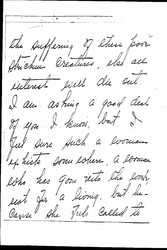 the suffering of these poor
stricken creatures, else all
interest will die out
I am asking a good deal
of you I know, but I
feel sure such a woman
exists somewhere. a woman
who has gone into the work
not for a living, but be-
cause she feels called to